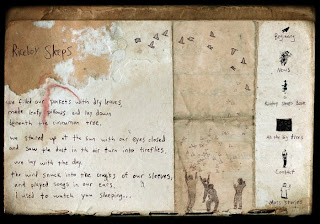 Rooley Sleeps
we filled our pockets with dry leaves,
made leafy pillows and lay down
beneath the cinnamon tree.
we stared up at the sun with our eyes closed
and saw the dust in the air turn into fireflies.
we lay with the day.
the wind snuck into the cuffs of our sleeves,
and played songs in our ears.
I used to watch you sleeping...
Beginning
News
Rooley Sleeps
As the sky
Contact
Moss Stories